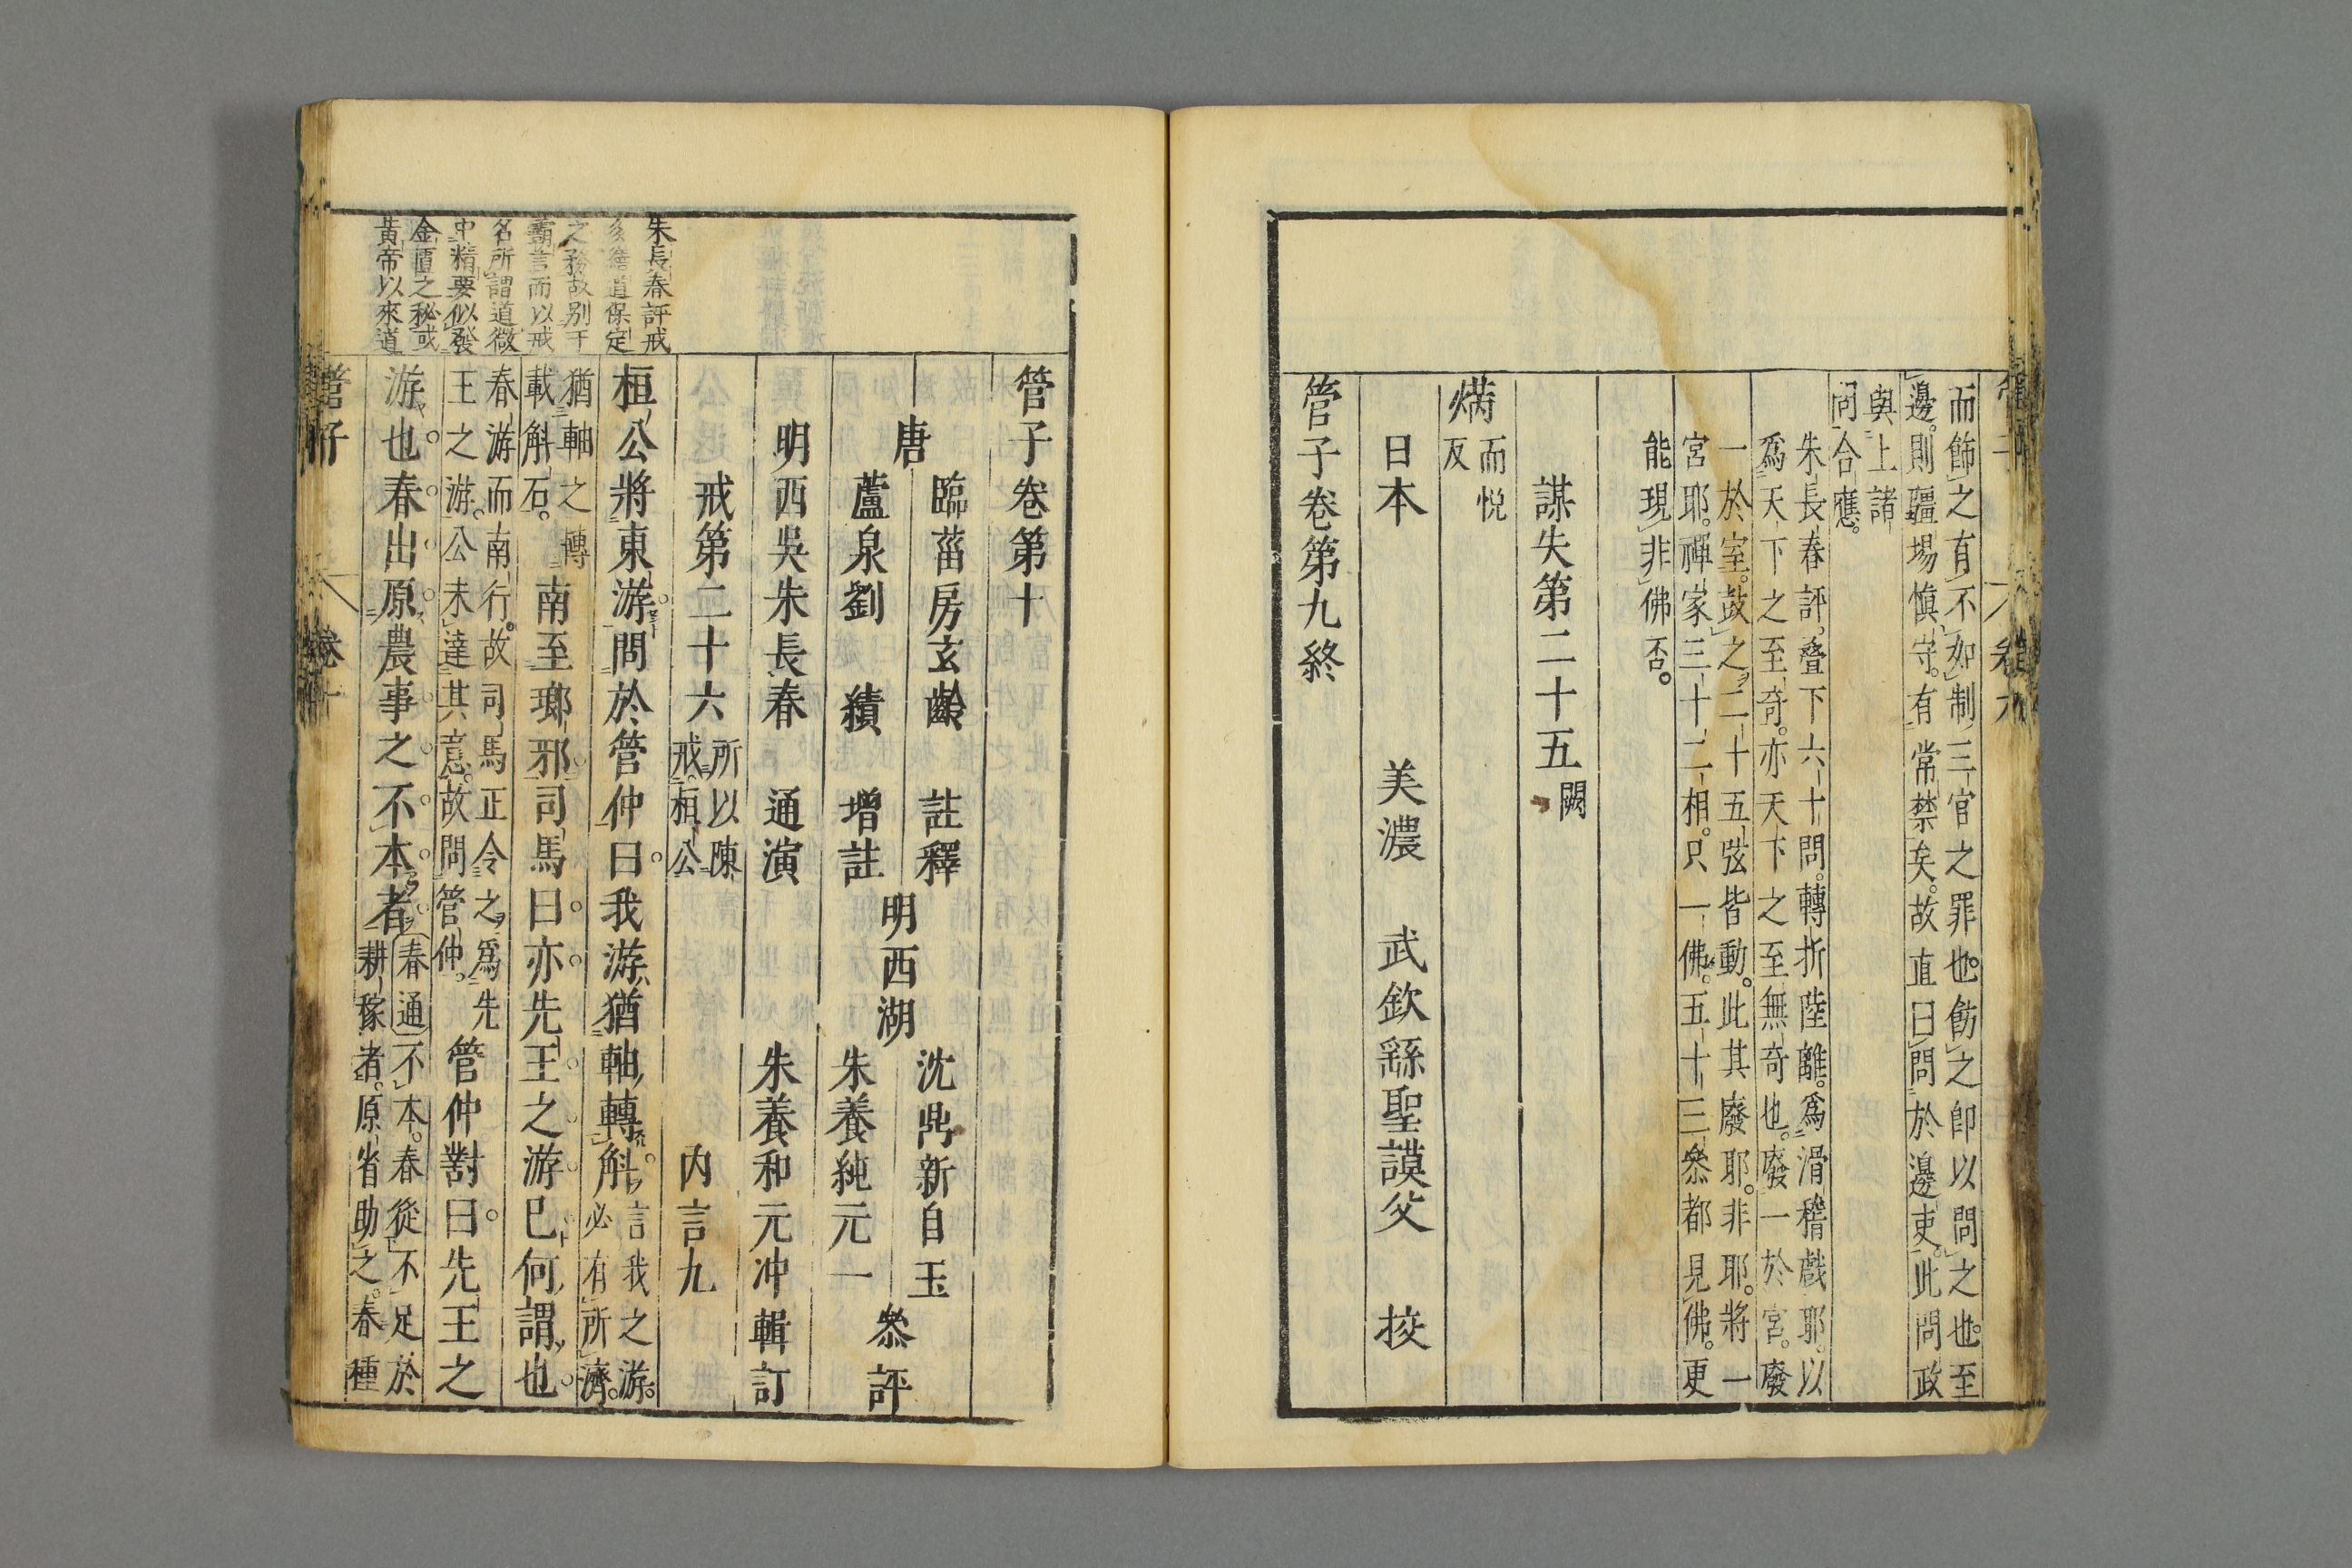 而飾之有不如制三官之罪也飭之卽以問之也至
邊則疆場慎守有常禁矣故直曰問於邊吏此問政
與上諸
問合應
朱長春評疊下六十問轉折陸離爲滑稽戲耶以
爲天下之至奇亦天下之至無奇也廢一於宮廢
一於室鼓之二十五弦皆動此其廢耶非耶將一
宮耶禪家三十二相只一佛五十三叅都見佛更
能現非佛否
謀失第二十五 闕
㒼 而悅
反
日本 美濃 武欽繇聖謨父 挍
管子卷第九終
管子 卷九
管子卷第十
唐 臨菑房玄齡 註釋
蘆泉劉績 增註
明西湖 沈鼎新自玉
朱養純元一 叅評
明西吳朱長春 通演
朱養和元冲輯訂
戒第二十六 所以陳
戒桓公 内言九
桓公將東游問於管仲曰我游猶軸轉斛 言我之游
必有所濟
猶軸之轉
載斛石 南至瑯邪司馬曰亦先王之游已何謂也
春游而南行故司馬正令之爲先
王之游公未達其意故問管仲 管仲對曰先王之
游也春出原農事之不本者 春通不本春從不足於
耕稼者原省助之春種
朱長春評戒
多繕道保定
之務故別于
霸言而以戒
名所謂道微
中精要似發
金匱之秘或
黃帝以來道
管子 卷十